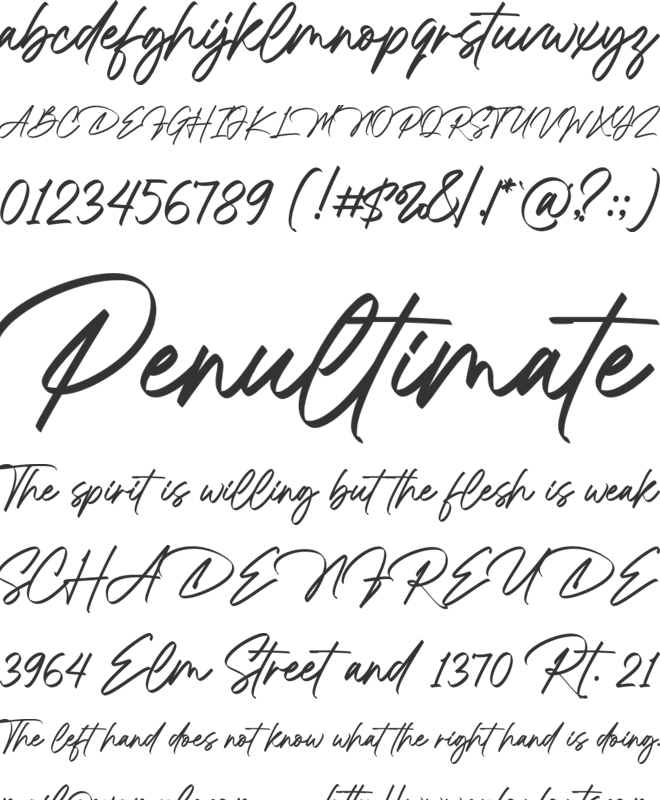 abcdefghijklmnopqrstuvwxyz
ABCDEFGHIJKLMNOPQRSTUVWXYZ
0123456789 (!#$%&/.|*`@;?:;)
Penultimate
The spirit is willing but the flesh is weak
SCHADENFREUDE
3964 Elm Street and 1370 Rt. 21
The left hand does not know what the right hand is doing.